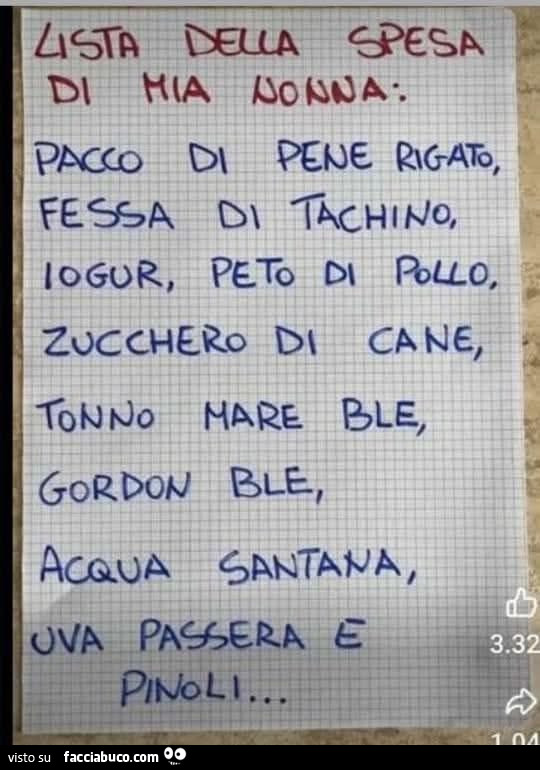 LISTA DELLA SPESA
DI MIA NONNA:
PACCO DI PENE RIGATO,
FESSA DI TACHINO,
IOGUR, PETO DI POLLO,
ZUCCHERO DI CANE,
TONNO MARE BLE,
GORDON BLE,
ACQUA SANTANA,
UVA PASSERA E
PINOLI...
3.32
1.04
visto su facciabuco.com